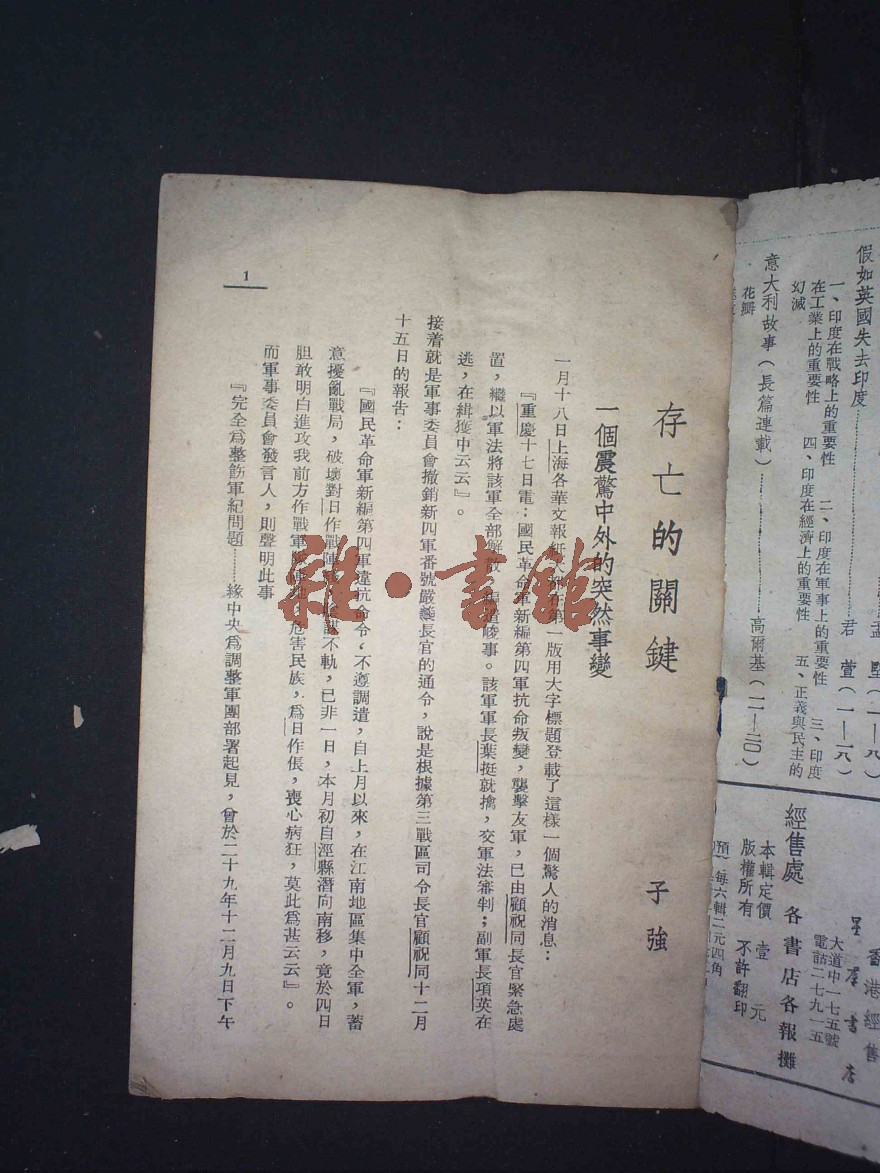 假如英國失去印度
一、印度在戰略上的重要性 二、印度在軍事上的重要性 三、印度
在工業上的重要性 四、印度在經濟上的重要性 五、正義與民主的
幻滅
君萱(一—一八)
意大利故事(長篇連載)
高爾基(一一—二〇)
花瓣
香港經售
星羣書店
大道中一七五號
電話二七九一五
經售處 各書店各報攤
本輯定價 壹元
版權所有 不許翻印
每六輯二元四角
存亡的關鍵
子強
一個震驚中外的突然事變
一月十八日上海各華文報紙在第一版用大字標題登載了這樣一個驚人的消息:
『重慶十七日電:國民革命軍新編第四軍抗命叛變,襲擊友軍,已由顧祝同長官緊急處
置,繼以軍法將該軍全部解散,編遣竣事。該軍軍長葉挺就擒,交軍法審判;副軍長項英在
逃,在緝獲中云云』。
接着就是軍事委員會撤銷新四軍番號嚴懲長官的通令,說是根據第三戰區司令長官顧祝同十二月
十五日的報告:
『國民革命軍新編第四軍違抗命令,不遵調遣,自上月以來,在江南地區集中全軍,蓄
意擾亂戰局,破壞對日作戰陣 不軌,已非一日,本月初自涇縣潛向南移,竟於四日
胆敢明白進攻我前方作戰軍 危害民族,爲日作倀,喪心病狂,莫此爲甚云云』。
而軍事委員會發言人,則聲明此事
『完全爲整飭軍紀問題……緣中央爲調整軍團部署起見,曾於二十九年十二月九日下午
1
雜·書館